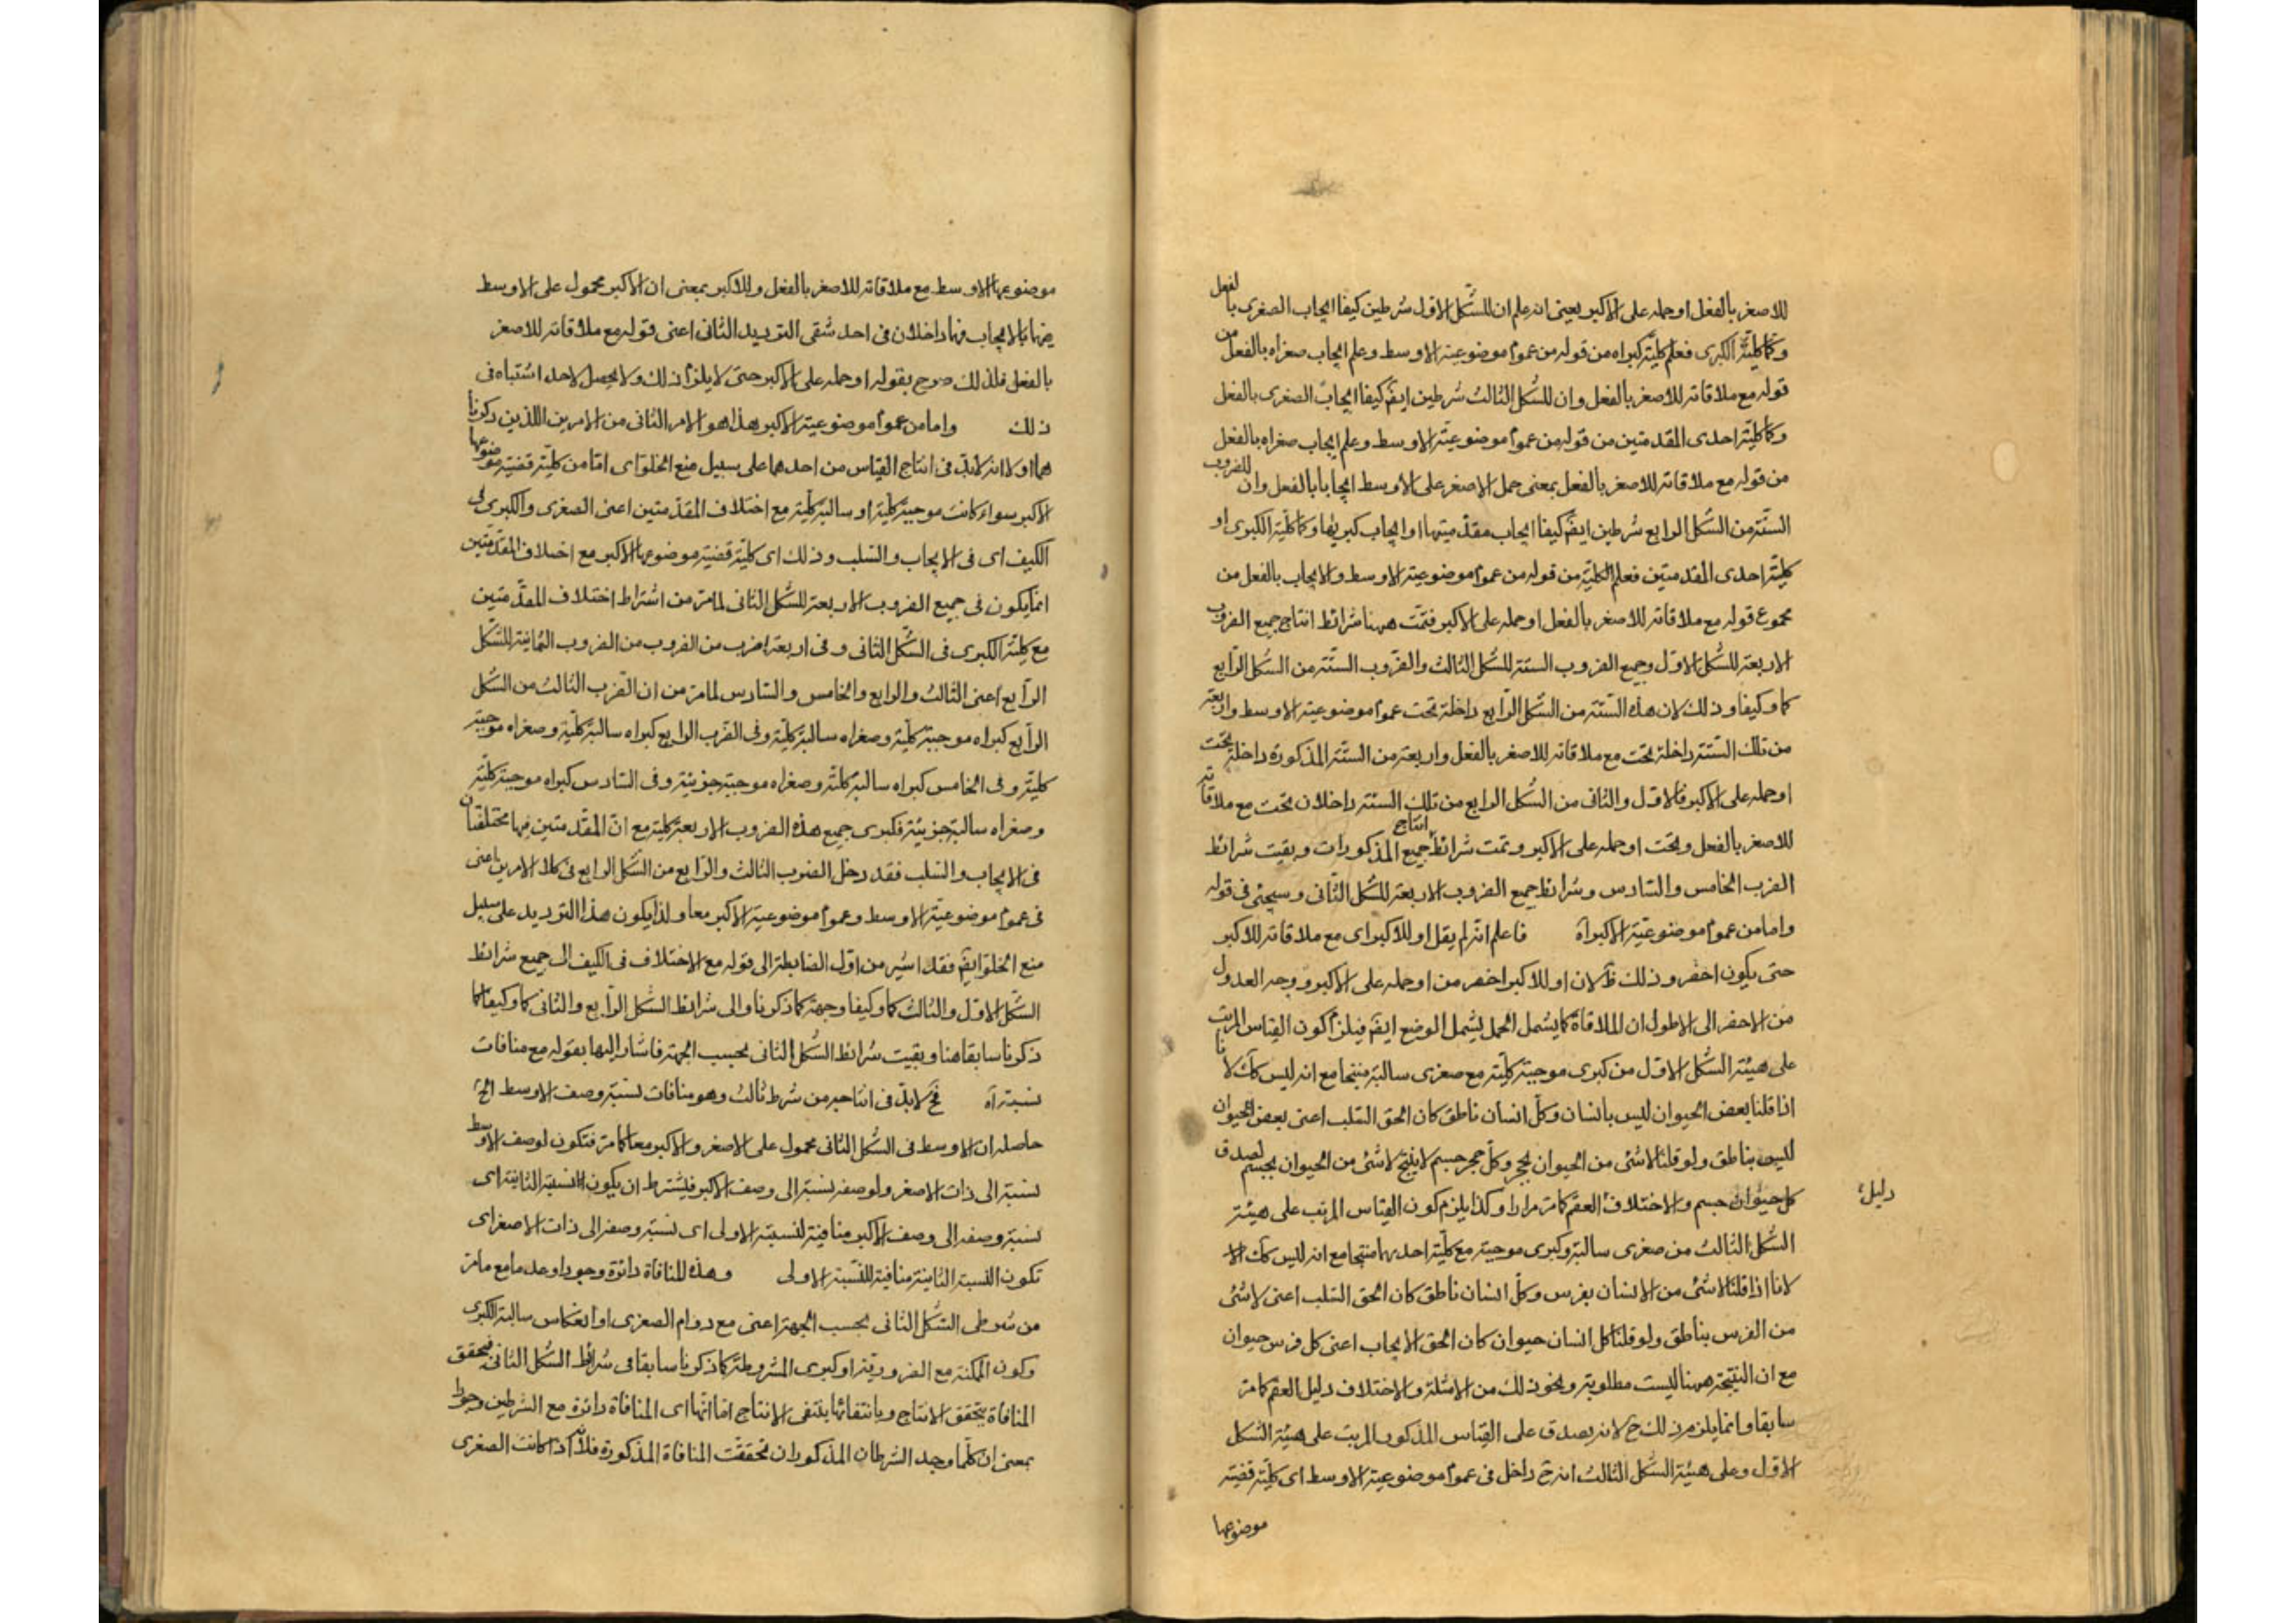 للاصغر بالفعل او حمله على الاكبر يعنى انه علم ان للشكل الاول شرطين كيفا ايجاب الصغرى بالفعل
وكما كلية الكبرى فعلم كلية كبراه من قوله من عموم موضوعية الاوسط وعلم ايجاب صغراه بالفعل من
قوله مع ملاقاته للاصغر بالفعل وان للشكل الثالث شرطين ايضً كيفا ايجاب الصغرى بالفعل
وكما كلية احدى المقدمتين من قوله من عموم موضوعية الاوسط وعلم ايجاب صغراه بالفعل
من قوله مع ملاقاته للاصغر بالفعل بمعنى حمل الاصغر على الاوسط ايجابا بالفعل وان للضروب
الستة من الشكل الرابع شرطين ايضً كيفا ايجاب مقدمتيها او ايجاب كبريها وكما كلية الكبرى او
كلية احدى المقدمتين فعلم الكلية من قوله من عموم موضوعية الاوسط والايجاب بالفعل من
مجموع قوله مع ملاقاته للاصغر بالفعل او حمله على الاكبر فتمت ههنا شرائط انتاج جميع الضروب
الاربعة للشكل الاول وجميع الضروب الستة للشكل الثالث والضروب الستة من الشكل الرابع
كما وكيفا وذلك لان هذه الستة من الشكل الرابع داخلة تحت عموم موضوعية الاوسط واربعة
من تلك الستة داخلة تحت مع ملاقاته للاصغر بالفعل واربعة من الستة المذكورة داخلة تحت
او حمله على الاكبر فالاول والثانى من الشكل الرابع من تلك الستة داخلان تحت مع ملاقاته
للاصغر بالفعل وتحت او حمله على الاكبر وتمت شرائط انتاج جميع المذكورات وبقيت شرائط
الضرب الخامس والسادس وشرائط جميع الضروب الاربعة للشكل الثانى وسيجئ فى قوله
واما من عموم موضوعية الاكبر آه فاعلم انه لم يقل او للاكبر اى مع ملاقاته للاكبر
حتى يكون اخصر وذلك ظ لان او للاكبر اخصر من او حمله على الاكبر ووجه العدول
من الاخصر الى الاطول ان الملاقاة كما يشمل الحمل يشمل الوضع ايضً فيلزم كون القياس المرتب
على هيئة الشكل الاول من كبرى موجبة كلية مع صغرى سالبة منتجا مع انه ليس كك لانا
اذا قلنا بعض الحيوان ليس بانسان وكل انسان ناطق كان الحق السلب اعنى بعض الحيوان
ليس بناطق ولو قلنا لاشئ من الحيوان بحجر وكل حجر جسم لاينتج لاشئ من الحيوان بجسم لصدق
كل حيوان جسم والاختلاف العقم كما مر مرارا وكذا يلزم كون القياس المرتب على هيئة
دليل
الشكل الثالث من صغرى سالبة وكبرى موجبة مع كلية احديهما منتجا مع انه ليس كك الا
لانا اذا قلنا لاشئ من الانسان بفرس وكل انسان ناطق كان الحق السلب اعنى لاشئ
من الفرس بناطق ولو قلنا كل انسان حيوان كان الحق الايجاب اعنى كل فرس حيوان
مع ان النتيجة ههنا ليست مطلوبة ونحو ذلك من الامثلة والاختلاف دليل العقم كما مر
سابقا وانما يلزم ذلك ح لانه يصدق على القياس المذكور المرتب على هيئة الشكل
الاول وعلى هيئة الشكل الثالث انه ح داخل فى عموم موضوعية الاوسط اى كلية قضية
موضوعها
موضوعها الاوسط مع ملاقاته للاصغر بالفعل وللاكبر بمعنى ان الاكبر محمول على الاوسط
فيهما بالايجاب فهما داخلان فى احد شقى الترديد الثانى اعنى قوله مع ملاقاته للاصغر
بالفعل فلذلك صرح بقوله او حمله على الاكبر حتى لايلزم ذلك ولا يحصل لاحد اشتباه فى
ذلك واما من عموم موضوعية الاكبر هذا هو الامر الثانى من الامرين اللذين ذكرنا
هما اولا انه لابد فى انتاج القياس من احدهما على سبيل منع الخلو اى اما من كلية قضية موضوعها
الاكبر سواء كانت موجبة كلية او سالبة كلية مع اختلاف المقدمتين اعنى الصغرى والكبرى فى
الكيف اى فى الايجاب والسلب وذلك اى كلية قضية موضوعها الاكبر مع اختلاف المقدمتين
انما يكون فى جميع الضروب الاربعة للشكل الثانى لما مر من اشتراط اختلاف المقدمتين
مع كلية الكبرى فى الشكل الثانى وفى اربعة اضرب من الضروب من الضروب الثمانية للشكل
الرابع اعنى الثالث والرابع والخامس والسادس لما مر من ان الضرب الثالث من الشكل
الرابع كبراه موجبة كلية وصغراه سالبة كلية وفى الضرب الرابع كبراه سالبة كلية وصغراه موجبة
كلية وفى الخامس كبراه سالبة كلية وصغراه موجبة جزئية وفى السادس كبراه موجبة كلية
وصغراه سالبة جزئية فكبرى جميع هذه الضروب الاربعة كلية مع ان المقدمتين فيها مختلفتان
فى الايجاب والسلب فقد دخل الضرب الثالث والرابع من الشكل الرابع فى كلا الامرين اعنى
فى عموم موضوعية الاوسط وعموم موضوعية الاكبر معا ولذا يكون هذا الترديد على سبيل
منع الخلو ايضً فقد اشير من اول الضابطة الى قوله مع الاختلاف فى الكيف الى جميع شرائط
الشكل الاول والثالث كما وكيفا وجهة كما ذكرنا والى شرائط الشكل الرابع والثانى كما وكيفا كما
ذكرنا سابقا هنا وبقيت شرائط الشكل الثانى بحسب الجهة فاشار اليها بقوله مع منافات
نسبة آه فح لابد فى انتاجه من شرط ثالث وهو منافات نسبة وصف الاوسط الخ
حاصله ان الاوسط فى الشكل الثانى محمول على الاصغر والاكبر معا كما مر فتكون لوصف الاوسط
نسبة الى ذات الاصغر ولوصفه نسبة الى وصف الاكبر فيشترط ان يكون النسبة الثانية اى
نسبة وصفه الى وصف الاكبر منافية لنسبته الاولى اى نسبة وصفه الى ذات الاصغر اى
تكون النسبة الثانية منافية للنسبة الاولى وهذه المنافاة دائرة وجودا وعدما مع ما مر
من شرطى الشكل الثانى بحسب الجهة اعنى مع دوام الصغرى او انعكاس سالبة الكبرى
وكون الممكنة مع الضرورية او كبرى المشروطة كما ذكرنا سابقا فى شرائط الشكل الثانى فبتحقق
المنافاة يتحقق الانتاج وبانتفائها ينتفى الانتاج اما انها اى المنافاة دائرة مع الشرطين وجودا
بمعنى ان كلما وجد الشرطان المذكوران تحققت المنافاة المذكورة فلانه اذا كانت الصغرى